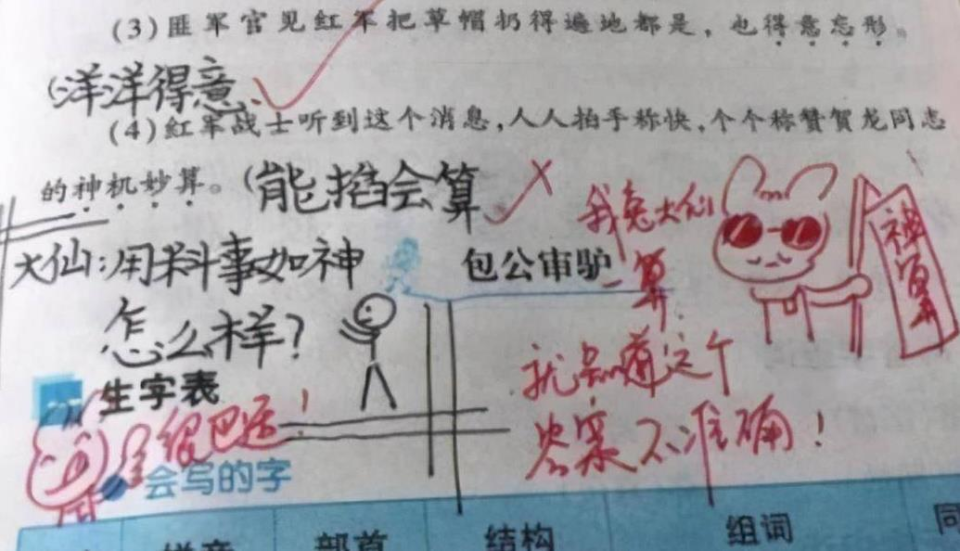 (3)匪军官见红军把草帽扔得遍地都是，也得意忘形。
(洋洋得意
(4)红军战士听到这个消息，人人拍手称快，个个称赞贺龙同志
的神机妙算。(能掐会算
我兔大仙
一算
就知道这个
答案不准确！
神算
大仙：用料事如神
怎么样？
包公审驴
生字表
很巴适！
会写的字
拼音 部首 结构 组词 同